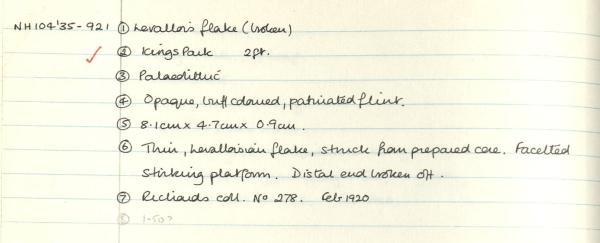 NH104'35-921 ① Levallois flake (broken)
✓ ② Kings Park 2ft.
③ Palaeolithic
④ Opaque, buff coloured, patinated flint.
⑤ 8.1cm x 4.7cm x 0.9cm.
⑥ Thin, Levalloisian flake, struck from prepared core. Facetted
striking platform. Distal end broken off.
⑦ Richards coll. No 278. Feb 1920
⑧ 1-50?